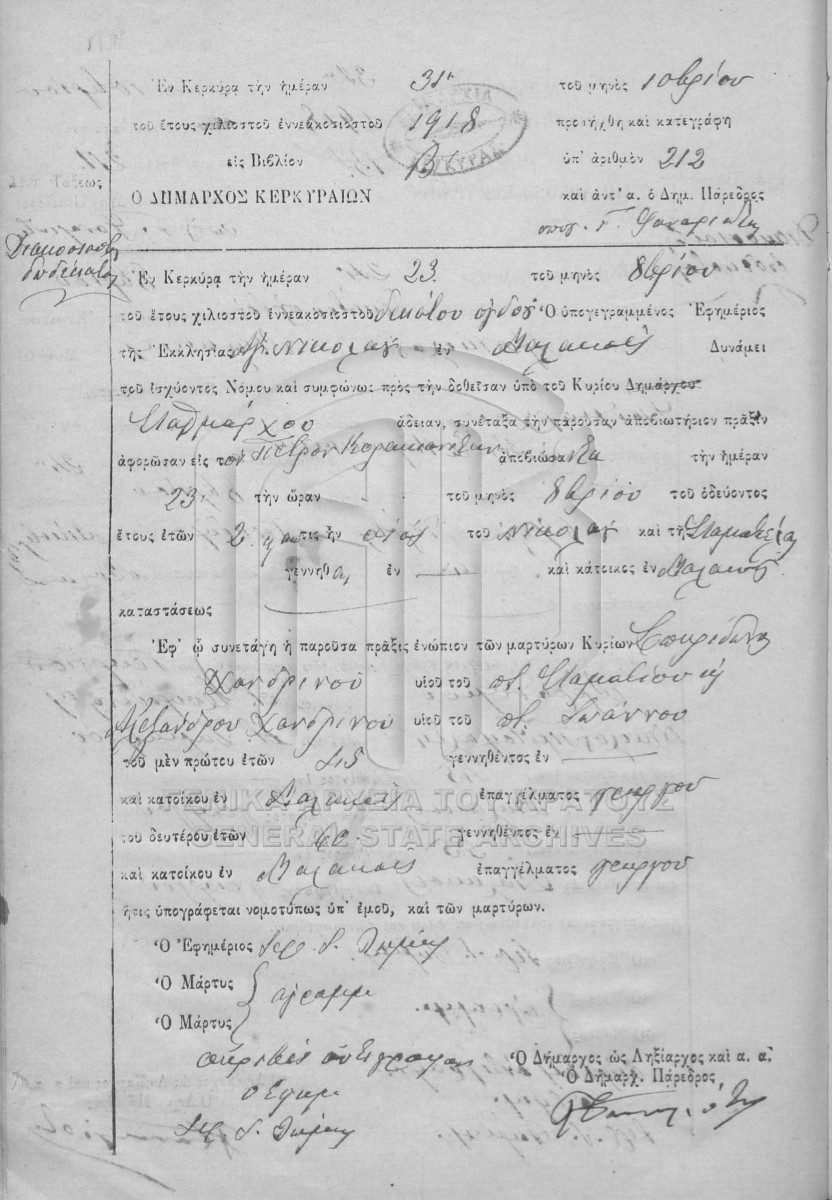 Ἐν Κερκύρᾳ τὴν ἡμέραν 31η τοῦ μηνὸς 10βρίου
τοῦ ἔτους χιλιοστοῦ ἐννεακοσιοστοῦ 1918 προσήχθη καὶ κατεγράφη
εἰς Βιβλίον Β΄ ὑπ' ἀριθμὸν 212
Ο ΔΗΜΑΡΧΟΣ ΚΕΡΚΥΡΑΙΩΝ καὶ ἀντ' α. ὁ Δημ. Πάρεδρος
Διακοσιοστὴ
δωδεκάτη
Ἐν Κερκύρᾳ τὴν ἡμέραν 23 τοῦ μηνὸς 8βρίου
τοῦ ἔτους χιλιοστοῦ ἐννεακοσιοστοῦ δεκάτου ὀγδόου Ὁ ὑπογεγραμμένος Ἐφημέριος
τῆς Ἐκκλησίας Ἁγ. Νικολάου ἐν Δυνάμει
τοῦ ἰσχύοντος Νόμου καὶ συμφώνως πρὸς τὴν δοθεῖσαν ὑπὸ τοῦ Κυρίου Δημάρχου
Σταθμάρχου ἄδειαν, συνέταξα τὴν παροῦσαν ἀποβιωτήριον πρᾶξιν
ἀφορῶσαν εἰς τὸν Πέτρον ἀποβιώσαντα τὴν ἡμέραν
23 τὴν ὥραν τοῦ μηνὸς 8βρίου τοῦ ὁδεύοντος
ἔτους ἐτῶν 2 τις ἦν υἱὸς τοῦ Νικολάου καὶ τῆς Σταματέλας
γεννηθ ἐν — καὶ κάτοικος ἐν
καταστάσεως
Ἐφ' ᾧ συνετάγη ἡ παροῦσα πρᾶξις ἐνώπιον τῶν μαρτύρων Κυρίων Σπυρίδωνα
Χανδρινοῦ υἱοῦ τοῦ π. Σταματίου κ
Ἀλεξάνδρου Χανδρινοῦ υἱοῦ τοῦ π. Ἰωάννου
τοῦ μὲν πρώτου ἐτῶν 45 γεννηθέντος ἐν —
καὶ κατοίκου ἐν ἐπαγγέλματος γεωργοῦ
ΓΕΝΙΚΑ ΑΡΧΕΙΑ ΤΟΥ ΚΡΑΤΟΥΣ
τοῦ δευτέρου ἐτῶν 60 γεννηθέντος ἐν —
GENERAL STATE ARCHIVES
καὶ κατοίκου ἐν ἐπαγγέλματος γεωργοῦ
ἥτις ὑπογράφεται νομοτύπως ὑπ' ἐμοῦ, καὶ τῶν μαρτύρων.
Ὁ Ἐφημέριος
Ὁ Μάρτυς ἀγράμμ
Ὁ Μάρτυς
ἀκριβὲς ἀντίγραφον Ὁ Δήμαρχος ὡς Ληξίαρχος καὶ α. α.
ὁ Ἐφημ Ὁ Δήμαρχ. Πάρεδρος